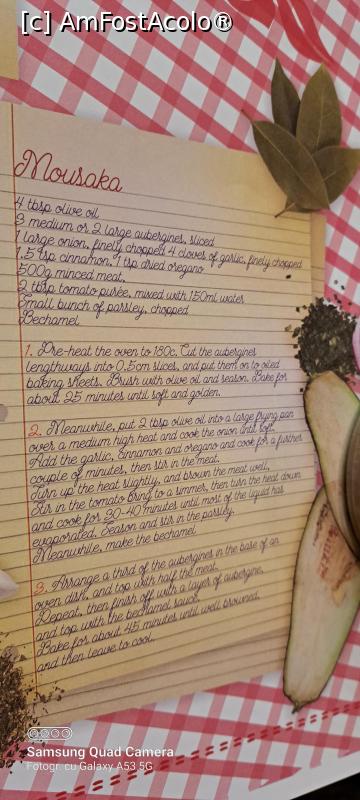 [c] AmFostAcolo®
Mousaka
4 tbsp olive oil
3 medium or 2 large aubergines, sliced
1 large onion, finely chopped 4 cloves of garlic, finely chopped
1.5 tsp cinnamon, 1 tsp dried oregano
500g minced meat,
2 tbsp tomato purée, mixed with 150ml water
Small bunch of parsley, chopped
Bechamel
1. Pre-heat the oven to 180c. Cut the aubergines
lengthways into 0.5cm slices, and put them on to oiled
baking sheets. Brush with olive oil and season. Bake for
about 25 minutes until soft and golden.
2. Meanwhile, put 2 tbsp olive oil into a large frying pan
over a medium high heat and cook the onion until soft.
Add the garlic, cinnamon and oregano and cook for a further
couple of minutes, then stir in the meat.
Turn up the heat slightly, and brown the meat well,
Stir in the tomato bring to a simmer, then turn the heat down
and cook for 30-40 minutes until most of the liquid has
evaporated. Season and stir in the parsley.
Meanwhile, make the bechamel.
3. Arrange a third of the aubergines in the base of an
oven dish, and top with half the meat.
Repeat, then finish off with a layer of aubergine,
and top with the bechamel sauce.
Bake for about 45 minutes until well browned,
and then leave to cool.
Samsung Quad Camera
Fotogr. cu Galaxy A53 5G